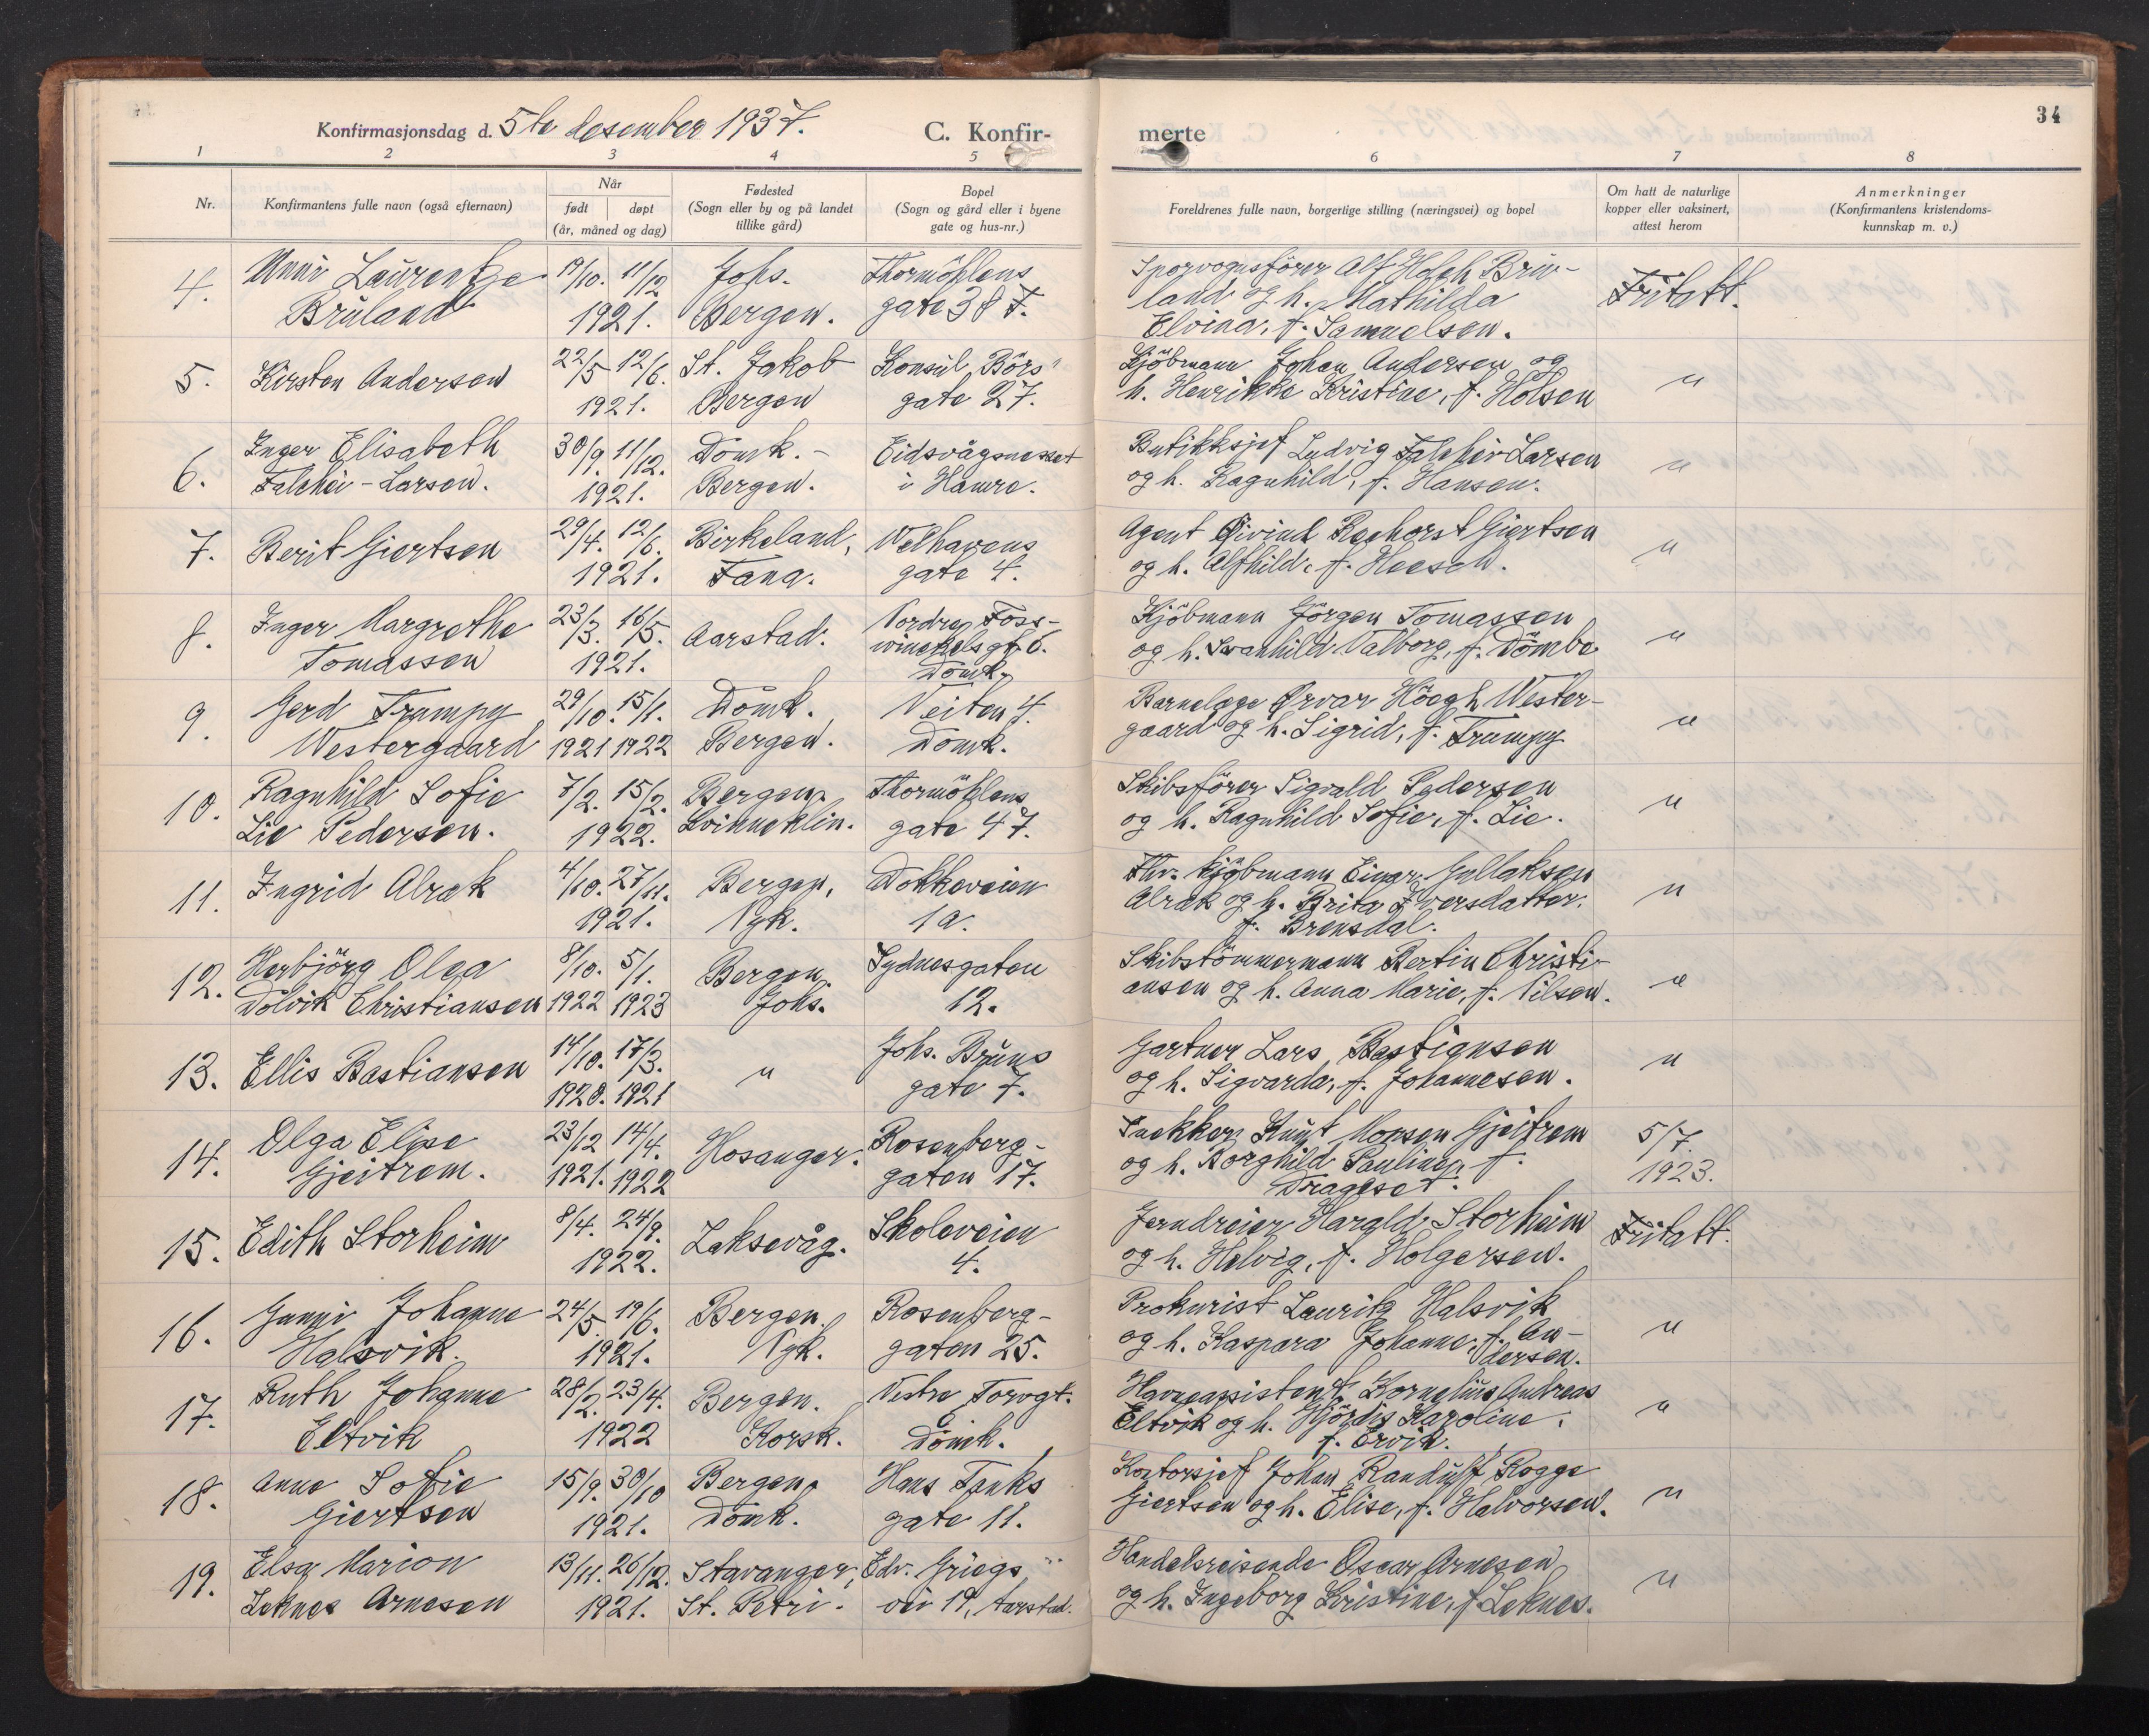 34
Konfirmasjonsdag d. 5te desember 1937.
C. Konfir-
merte
1 2 3 4 5 6 7 8
Nr.
Konfirmantens fulle navn (også efternavn)
Når
født døpt
(år, måned og dag)
Fødested
(Sogn eller by og på landet
tillike gård)
Bopel
(Sogn og gård eller i byene
gate og hus-nr.)
Foreldrenes fulle navn, borgerlige stilling (næringsvei) og bopel
Om hatt de naturlige
kopper eller vaksinert,
attest herom
Anmerkninger
(Konfirmantens kristendoms-
kunnskap m. v.)
4. Unni Laurentze
Bruland
19/10. 11/12
1921.
Johs.
Bergen.
Thormöhlens
gate 38 f.
Sporvognsförer Alf Holck Bru-
land og h. Mathilda
Elvina, f. Samuelsen.
Fritatt.
5. Kirsten Andersen
22/5 12/6.
1921.
St. Jakob
Bergen
Konsul Börs
gate 27.
Kjöbmann Johan Andersen og
h. Henrikke Kristine, f. Holsen
"
6. Inger Elisabeth
Falchøi-Larsen.
30/9. 11/12.
1921.
Domk. -
Bergen.
Eidsvågsnesset
i Hamre.
Butikksjef Ludvig Falchøi Larsen
og h. Ragnhild, f. Hansen.
"
7. Berit Giertsen
29/4. 12/6.
1921.
Birkeland,
Fana.
Welhavens
gate 4.
Agent Øivind Reehorst Giertsen
og h. Alfhild, f. Heesch.
"
8. Inger Margrethe
Tomassen
23/3. 16/5.
1921.
Aarstad.
Nordre Foss-
winckels gt. 6.
Domk.
Kjöbmann Jörgen Tomassen
og h. Svanhild Valborg, f. Dömbe
"
9. Gerd Trumpy
Westergaard
29/10. 15/1.
1921 1922
Domk.
Bergen.
Veiten 4.
Domk.
Barnelege Ørvar Höegh Wester-
gaard og h. Sigrid, f. Trumpy
"
10. Ragnhild Sofie
Lie Pedersen.
7/2. 15/2.
1922.
Bergen,
Kvinneklin.
Thormöhlens
gate 47.
Skibsförer Sigvald Pedersen
og h. Ragnhild Sofie, f. Lie.
"
11. Ingrid Alrek
4/10. 27/11.
1921.
Bergen,
Nyk.
Dokkeveien
1a.
Fhv. kjöbmann Einar Gullaksen
Alrek og h. Brita Iversdatter,
f. Brensdal.
"
12. Herbjörg Olga
Dolvik Christiansen
8/10. 5/1.
1922 1923
Bergen.
Johs.
Sydnesgaten
12.
Skibstömmermann Bertin Christi-
ansen og h. Anna Marie, f. Nilsen.
"
13. Ellis Bastiansen
14/10. 17/3.
1920. 1921
"
Johs. Bruns
gate 7.
Gartner Lars Bastiansen
og h. Sigvarda, f. Johannesen.
"
14. Olga Elise
Gjeitrem.
23/12 14/4.
1921. 1922
Hosanger.
Rosenberg-
gaten 17.
Snekker Knut Monsen Gjeitrem
og h. Borghild Pauline, f.
Drageset.
5/7
1923.
15. Edith Storheim
8/4. 24/9.
1922.
Laksevåg.
Skoleveien
4.
Jerndreier Harald Storheim
og h. Helvig, f. Holgersen.
Fritatt.
16. Gunni Johanne
Halsvik.
24/5. 19/6.
1921.
Bergen.
Nyk.
Rosenberg-
gaten 25.
Prokurist Lauritz Halsvik
og h. Kaspara Johanne, f. An-
dersen.
"
17. Ruth Johanne
Eltvik
28/2. 23/4.
1922
Bergen.
Korsk.
Vestre Torvgt.
6
Domk.
Havneassistent Kornelius Andreas
Eltvik og h. Hjördis Karoline,
f. Ervik.
"
18. Anne Sofie
Giertsen
15/9. 30/10
1921.
Bergen,
Domk.
Hans Tanks
gate 11.
Kontorsjef Johan Randulff Rogge
Giertsen og h. Elise, f. Halvorsen.
"
19. Elsa Marion
Leknes Arnesen
13/11. 26/12.
1921.
Stavanger,
St. Petri.
Edv. Griegs
vei 19, Aarstad.
Handelsreisende Oscar Arnesen
og h. Ingeborg Kristine, f. Leknes.
"